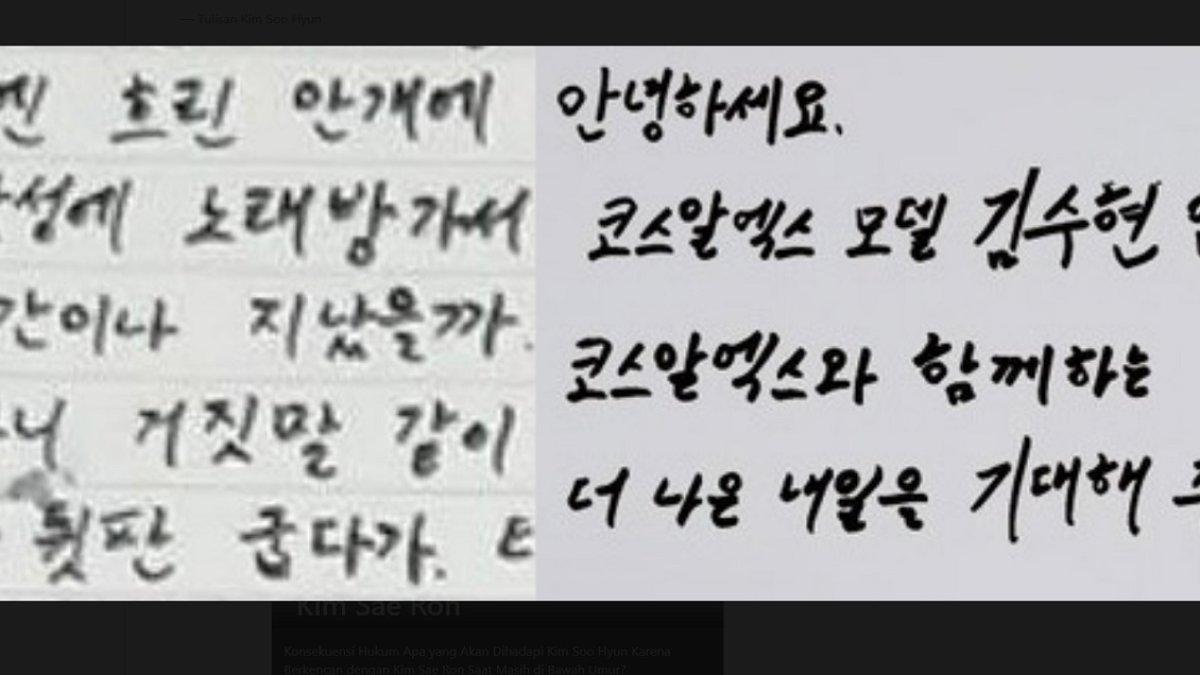 — Tulisan Kim Soo Hyun
흐린 안개에
노래방가서
간이나 지났을까.
거짓말 같이
뒷판 굽다가. E
안녕하세요.
코스알엑스 모델 김수현
코스알엑스와 함께하는
더 나은 내일을 기대해
Kim Sae Ron
Konsekuensi Hukum Apa yang Akan Dihadapi Kim Soo Hyun Karena
Berkencan dengan Kim Sae Ron Saat Masih di Bawah Umur?